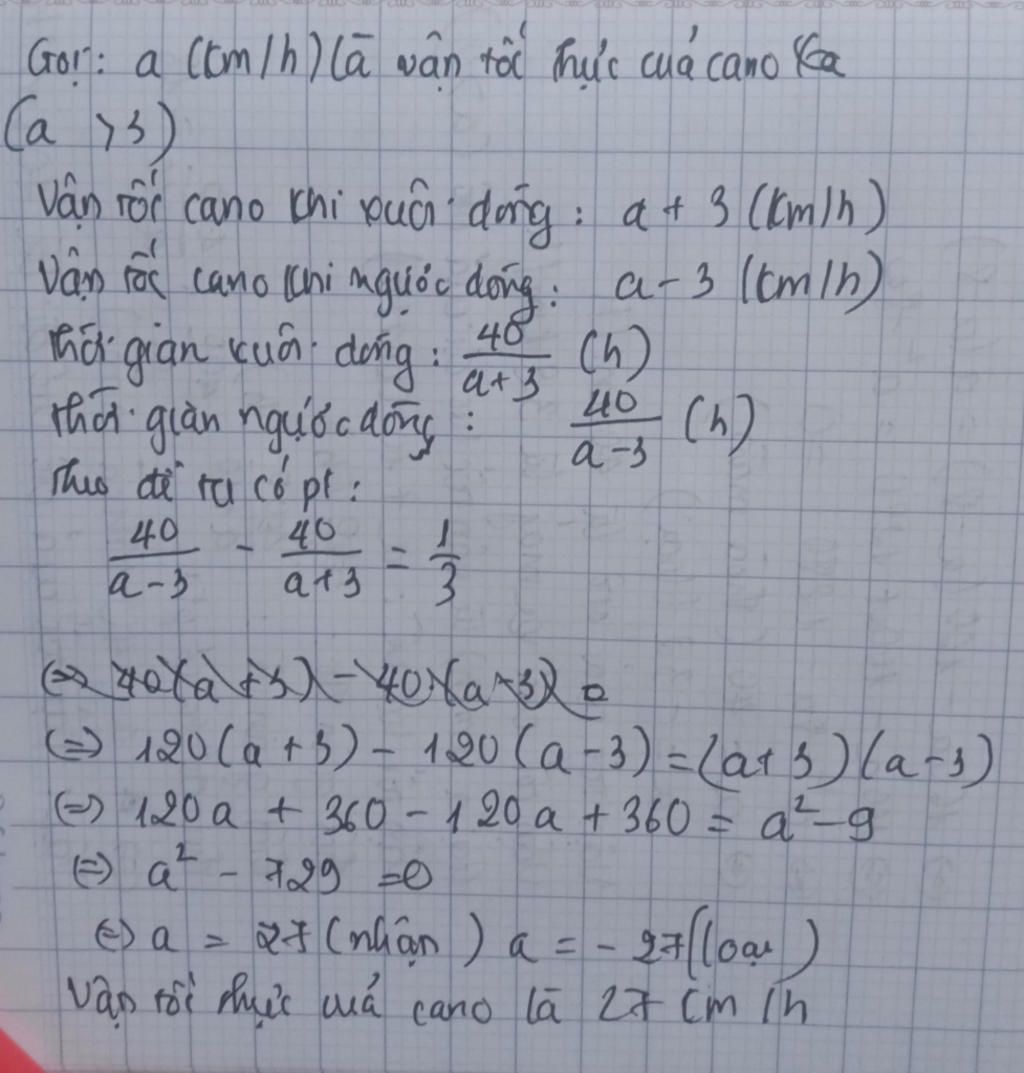 Gọi: a (km/h) là vận tốc thực của cano
(a > 3)
Vận tốc cano khi xuôi dòng: a + 3 (km/h)
Vận tốc cano khi ngược dòng: a - 3 (km/h)
thời gian xuôi dòng: 40/(a+3) (h)
thời gian ngược dòng: 40/(a-3) (h)
Theo đề ta có pt:
40/(a-3) - 40/(a+3) = 1/3
(=> 40(a+3) - 40(a-3) =
(=) 120(a+3) - 120(a-3) = (a+3)(a-3)
(=) 120a + 360 - 120a + 360 = a² - 9
(=) a² - 729 = 0
(=) a = 27 (nhận) a = - 27 (loại)
Vận tốc thực của cano là 27 km/h